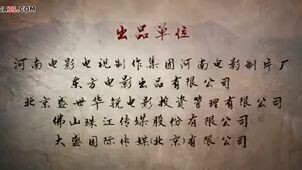 出品单位
河南电影电视制作集团河南电影制片厂
东方电影出品有限公司
北京盛世华锐电影投资管理有限公司
佛山珠江传媒股份有限公司
大盛国际传媒(北京)有限公司